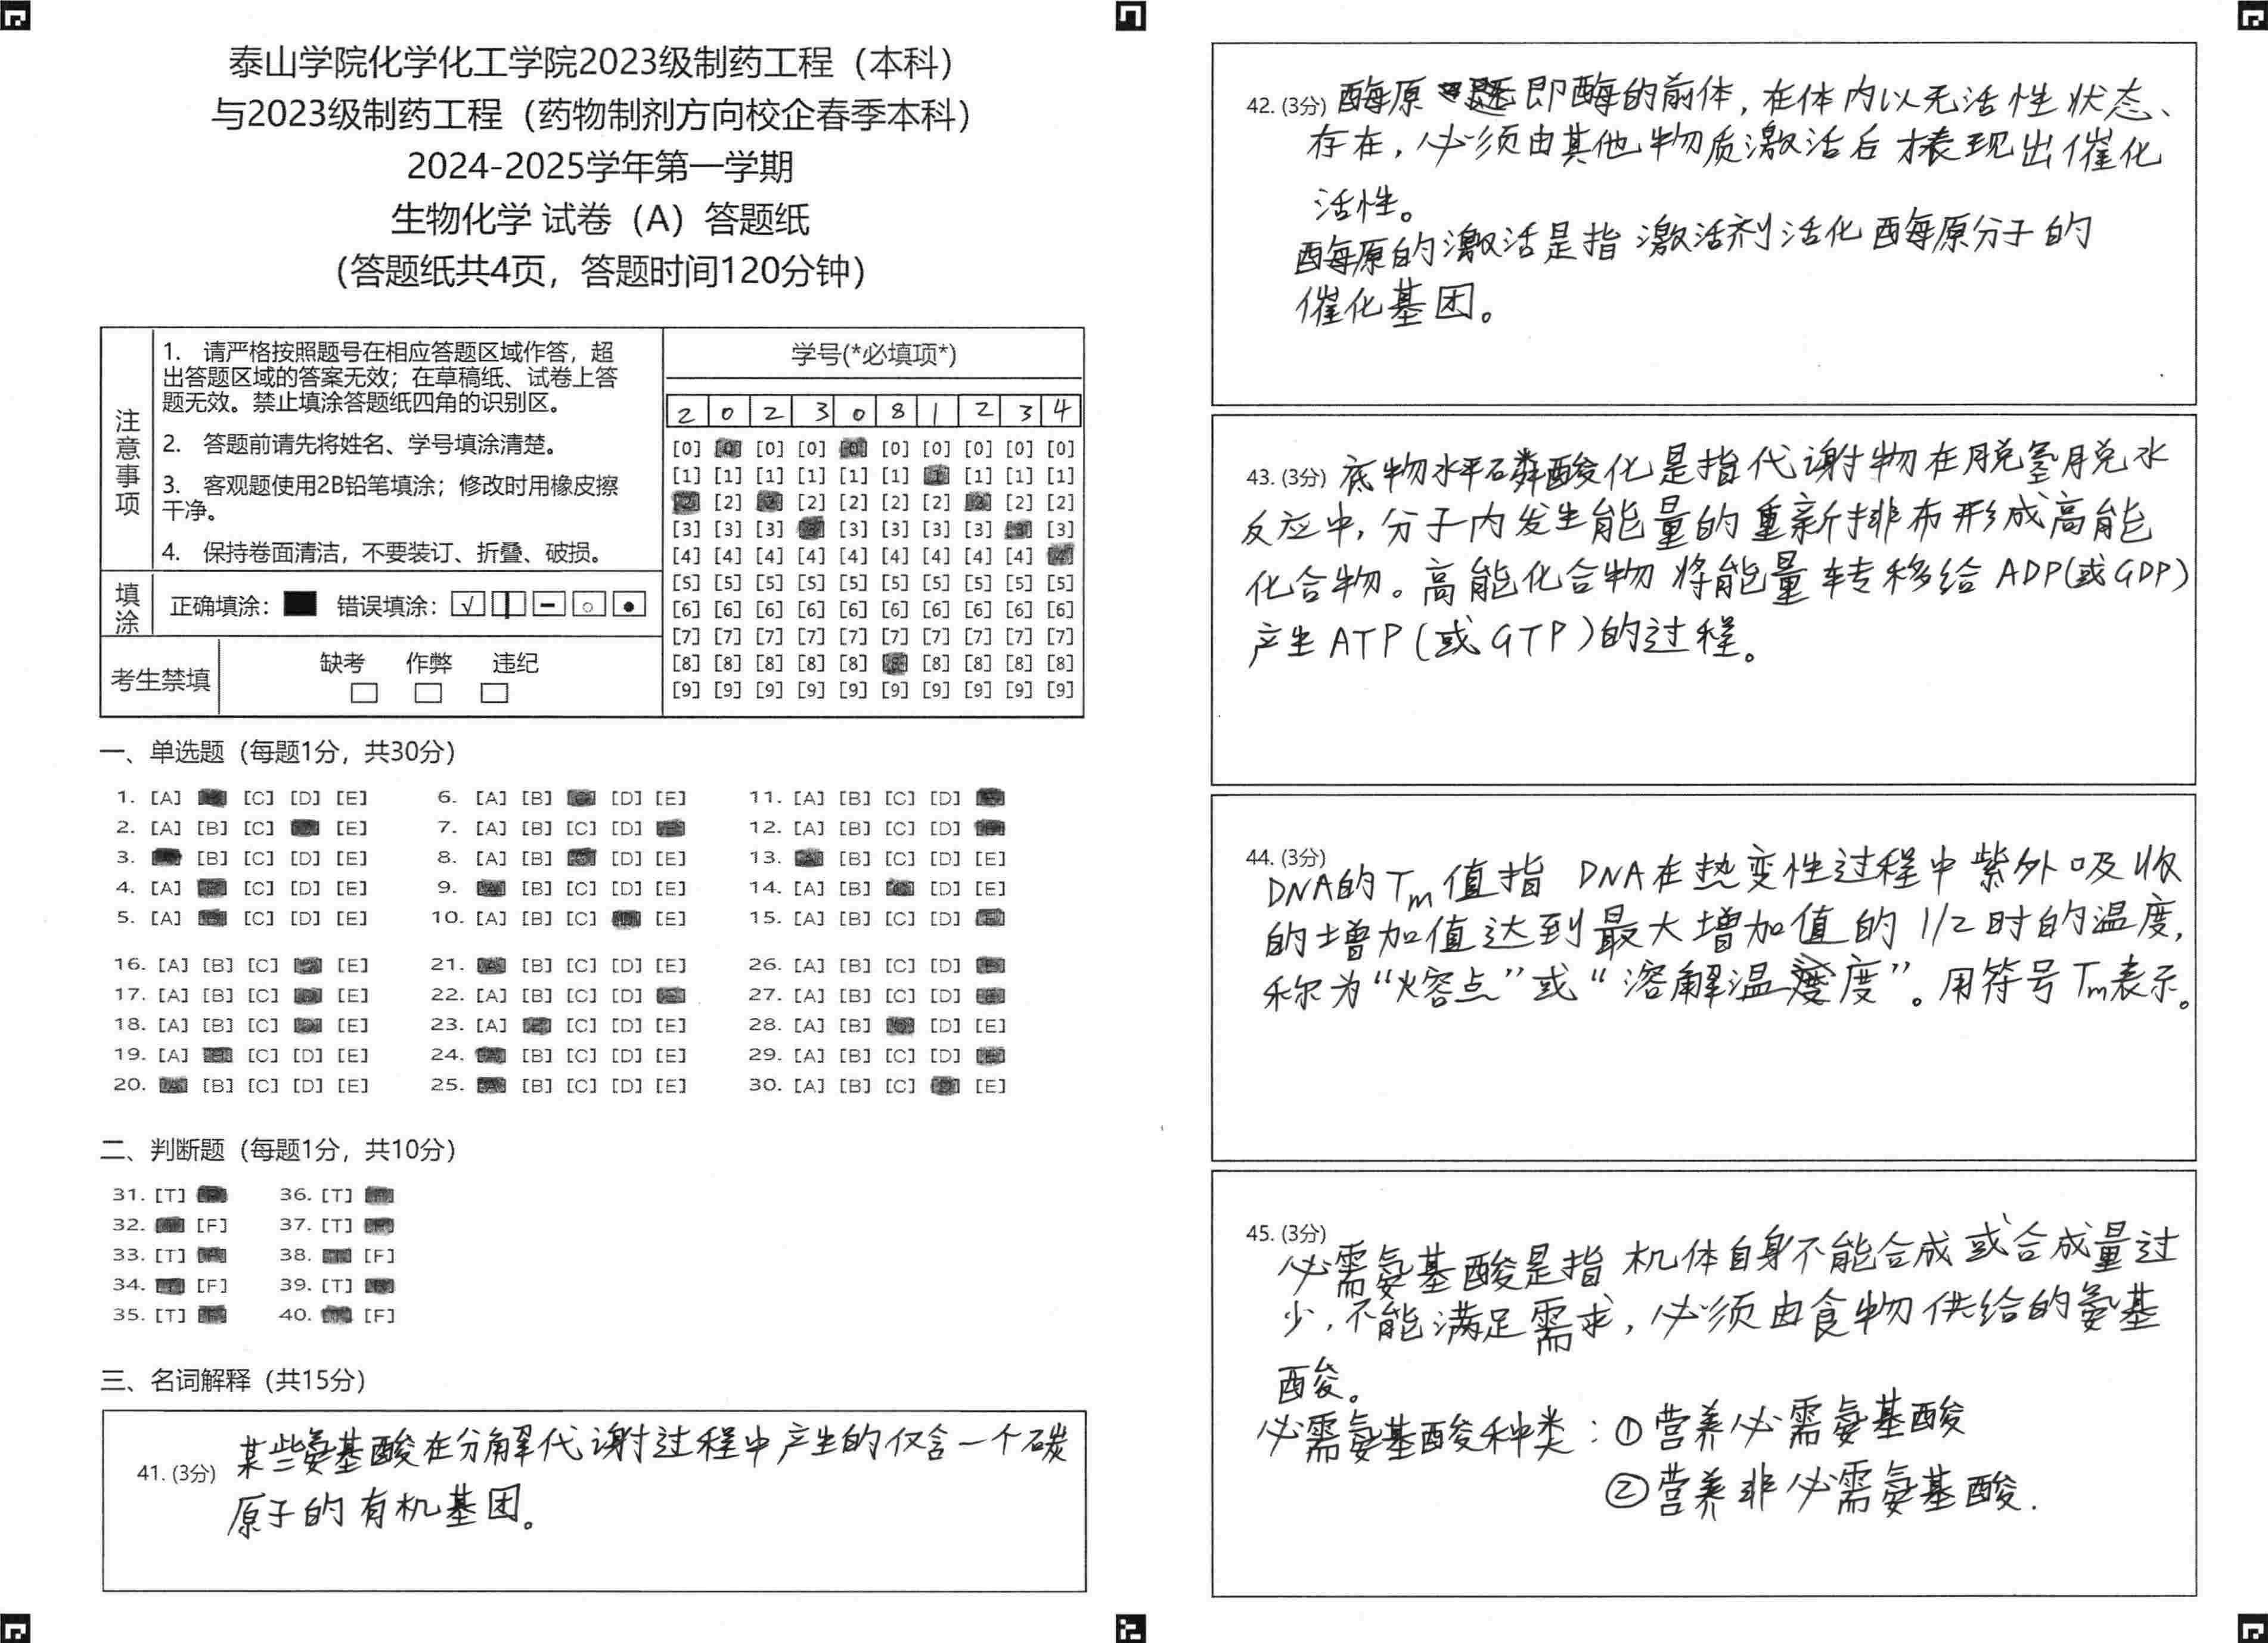 泰山学院化学化工学院2023级制药工程（本科）
与2023级制药工程（药物制剂方向校企春季本科）
2024-2025学年第一学期
生物化学 试卷（A）答题纸
（答题纸共4页，答题时间120分钟）
注意事项
1. 请严格按照题号在相应答题区域作答，超
出答题区域的答案无效；在草稿纸、试卷上答
题无效。禁止填涂答题纸四角的识别区。
2. 答题前请先将姓名、学号填涂清楚。
3. 客观题使用2B铅笔填涂；修改时用橡皮擦
干净。
4. 保持卷面清洁，不要装订、折叠、破损。
填涂
正确填涂： 错误填涂：
考生禁填
缺考 作弊 违纪
学号(*必填项*)
2 0 2 3 0 8 1 2 3 4
[0] [0] [0] [0] [0] [0] [0] [0] [0] [0]
[1] [1] [1] [1] [1] [1] [1] [1] [1] [1]
[2] [2] [2] [2] [2] [2] [2] [2] [2] [2]
[3] [3] [3] [3] [3] [3] [3] [3] [3] [3]
[4] [4] [4] [4] [4] [4] [4] [4] [4] [4]
[5] [5] [5] [5] [5] [5] [5] [5] [5] [5]
[6] [6] [6] [6] [6] [6] [6] [6] [6] [6]
[7] [7] [7] [7] [7] [7] [7] [7] [7] [7]
[8] [8] [8] [8] [8] [8] [8] [8] [8] [8]
[9] [9] [9] [9] [9] [9] [9] [9] [9] [9]
一、单选题（每题1分，共30分）
1. [A] [C] [D] [E] 6. [A] [B] [D] [E] 11. [A] [B] [C] [D]
2. [A] [B] [C] [E] 7. [A] [B] [C] [D] 12. [A] [B] [C] [D]
3. [B] [C] [D] [E] 8. [A] [B] [D] [E] 13. [B] [C] [D] [E]
4. [A] [C] [D] [E] 9. [B] [C] [D] [E] 14. [A] [B] [D] [E]
5. [A] [C] [D] [E] 10. [A] [B] [C] [E] 15. [A] [B] [C] [D]
16. [A] [B] [C] [E] 21. [B] [C] [D] [E] 26. [A] [B] [C] [D]
17. [A] [B] [C] [E] 22. [A] [B] [C] [D] 27. [A] [B] [C] [D]
18. [A] [B] [C] [E] 23. [A] [C] [D] [E] 28. [A] [B] [D] [E]
19. [A] [C] [D] [E] 24. [B] [C] [D] [E] 29. [A] [B] [C] [D]
20. [B] [C] [D] [E] 25. [B] [C] [D] [E] 30. [A] [B] [C] [E]
二、判断题（每题1分，共10分）
31. [T] 36. [T]
32. [F] 37. [T]
33. [T] 38. [F]
34. [F] 39. [T]
35. [T] 40. [F]
三、名词解释（共15分）
41. (3分) 某些氨基酸在分解代谢过程中产生的仅含一个碳
原子的有机基团。
42. (3分) 酶原 即酶的前体，在体内以无活性状态、
存在，必须由其他物质激活后才表现出催化
活性。
酶原的激活是指 激活剂活化酶原分子的
催化基团。
43. (3分) 底物水平磷酸化是指代谢物在脱氢脱水
反应中，分子内发生能量的重新排布形成高能
化合物。高能化合物将能量转移给ADP(或GDP)
产生ATP(或GTP)的过程。
44. (3分)
DNA的Tm值指 DNA在热变性过程中紫外吸收
的增加值达到最大增加值的1/2时的温度,
称为“熔点”或“溶解温度”。用符号Tm表示。
45. (3分)
必需氨基酸是指 机体自身不能合成或合成量过
少，不能满足需求，必须由食物供给的氨基
酸。
必需氨基酸种类：①营养必需氨基酸
②营养非必需氨基酸.